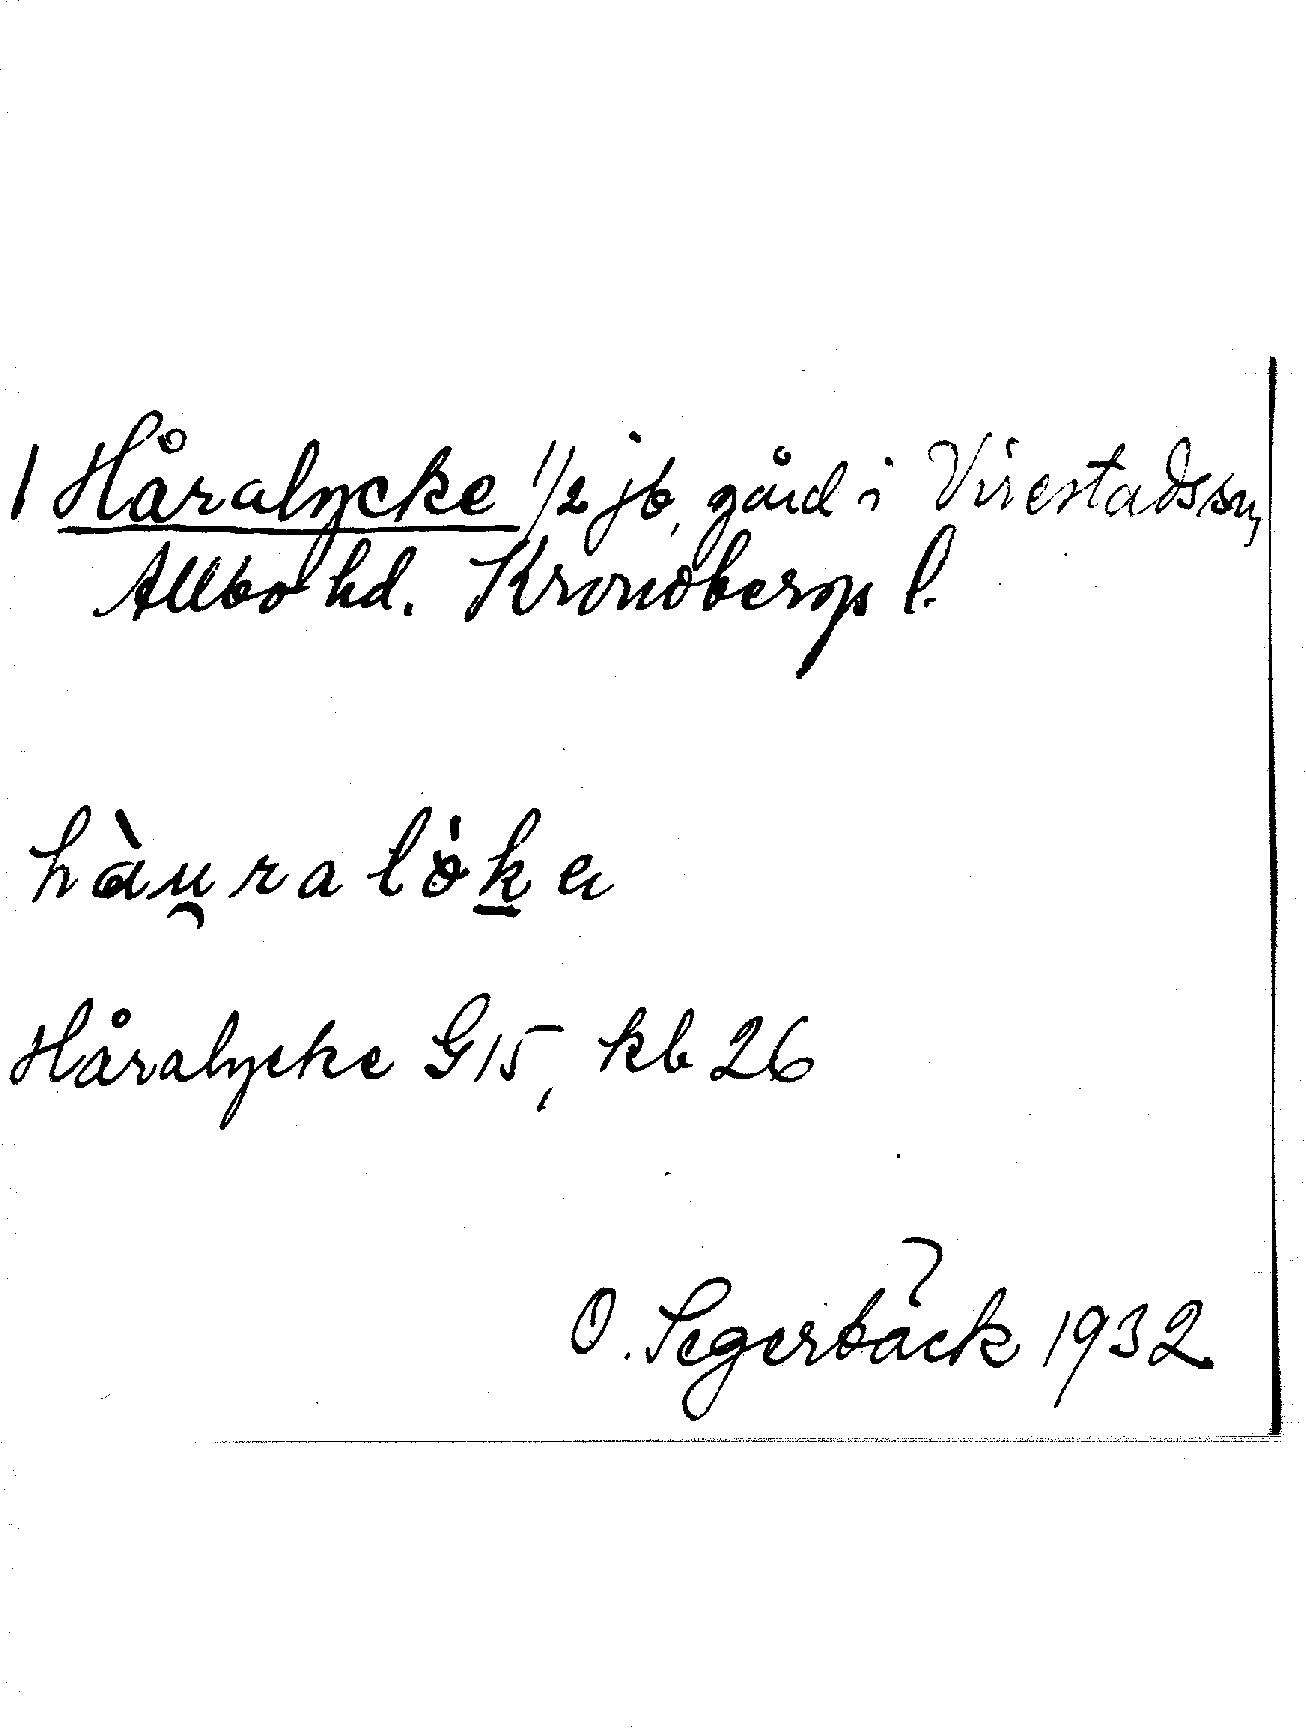 1 Håralycke 1/2 jb, gård i Virestads sn,
Allbo hd. Kronobergs l.
hàu̯ralökɐ
Håralycke G15, kb 26
O. Segerbäck 1932